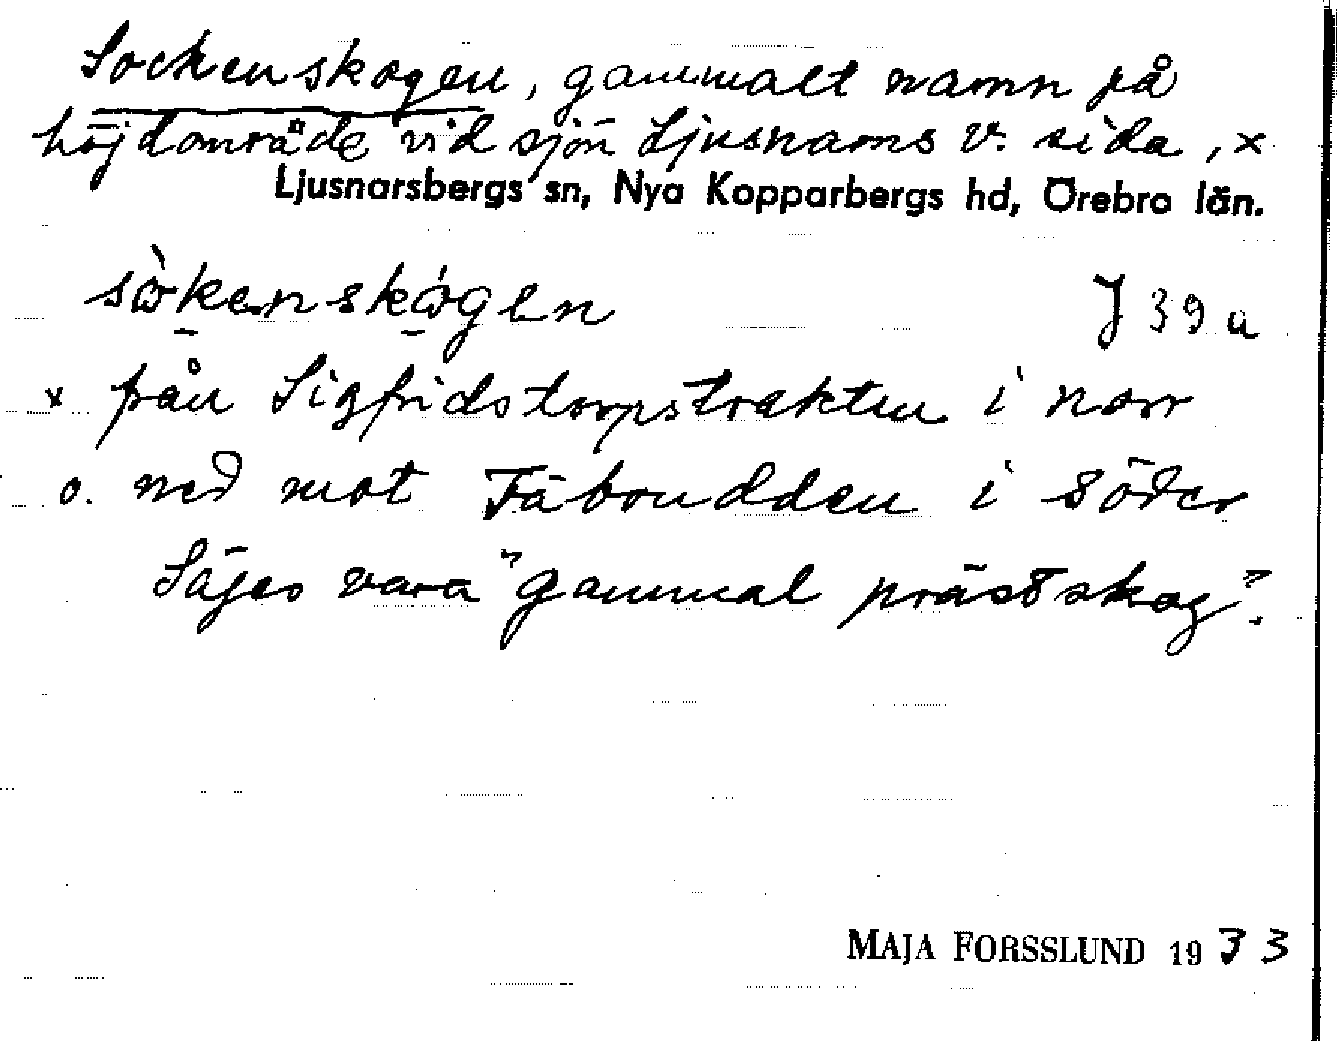 Sockenskogen, gammalt namn på
höjdområde vid sjön Ljusnarns v. sida, ×
Ljusnarsbergs sn, Nya Kopparbergs hd, Örebro län.
sòkenskógen J 39 a
× från Sigfridstorpstrakten i norr
o. ned mot Fäbrudden i söder
Säges vara "gammal prästskog".
MAJA FORSSLUND 1933